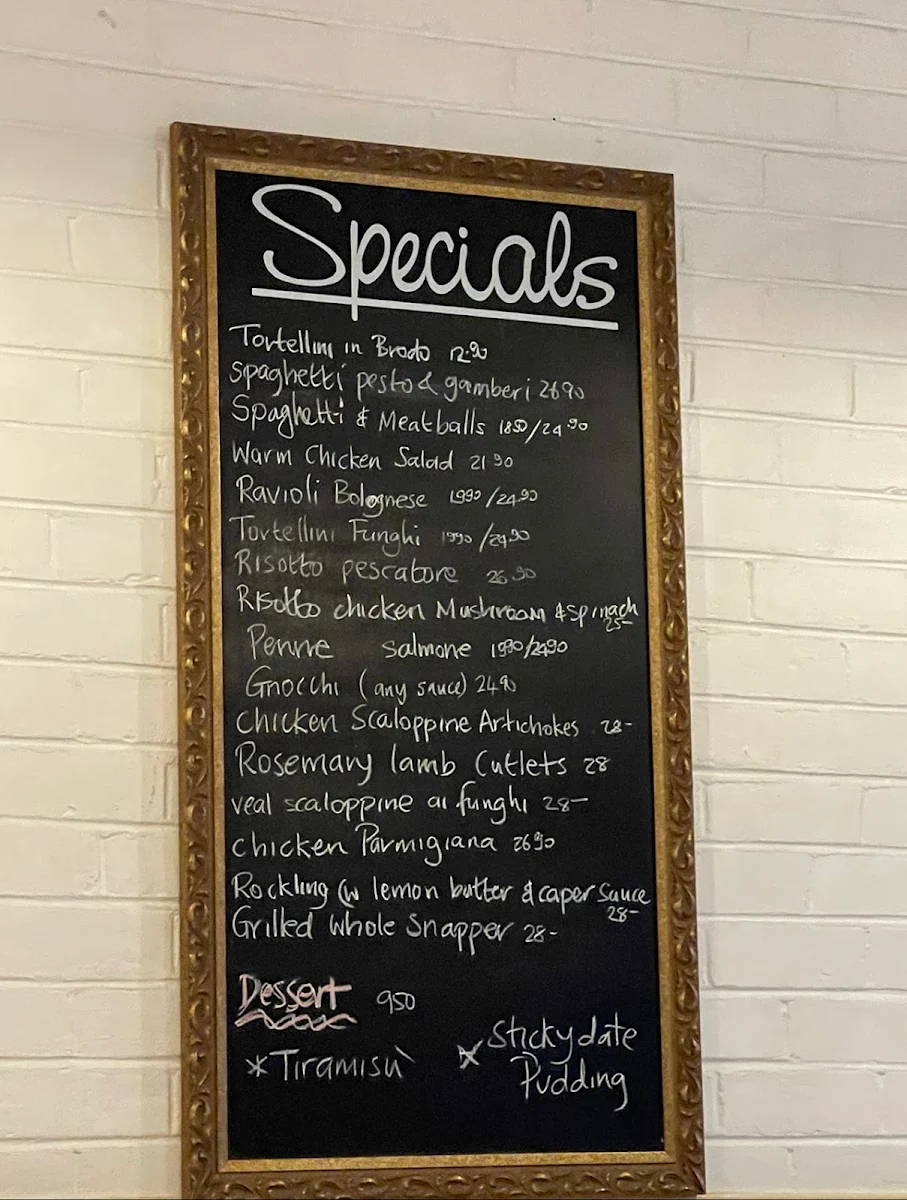 Specials
Tortellini in Brodo 12.90
Spaghetti pesto & gamberi 26 90
Spaghetti & Meatballs 18 90/24 90
Warm Chicken Salad 21 90
Ravioli Bolognese 19 90/24.90
Tortellini Funghi 19 90/24.90
Risotto pescatore 26 90
Risotto chicken Mushroom & spinach
25-
Penne Salmone 19 90/24 90
Gnocchi (any sauce) 24 90
Chicken Scaloppine Artichokes 28-
Rosemary lamb Cutlets 28
veal scaloppine ai funghi 28-
chicken Parmigiana 26 90
Rockling (w lemon butter & caper sauce
28-
Grilled Whole Snapper 28-
Dessert 950
*Tiramisù
x Sticky date
Pudding